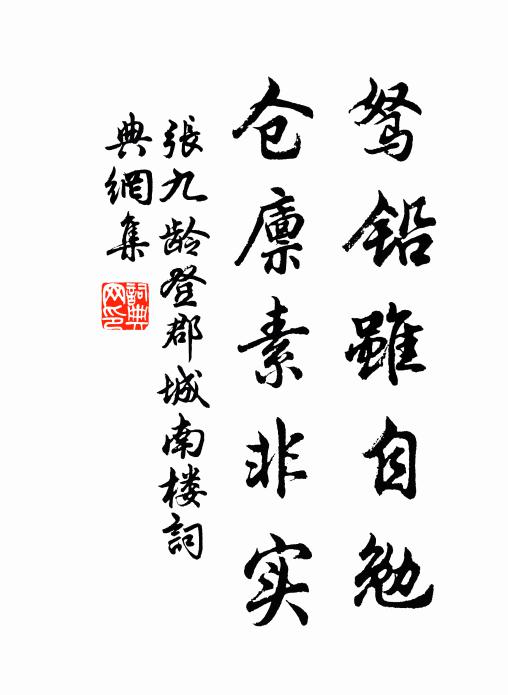 驽铅雖自勉
仓廪素非实
張九龄登郡城南楼詞
典網集
詞典
网印